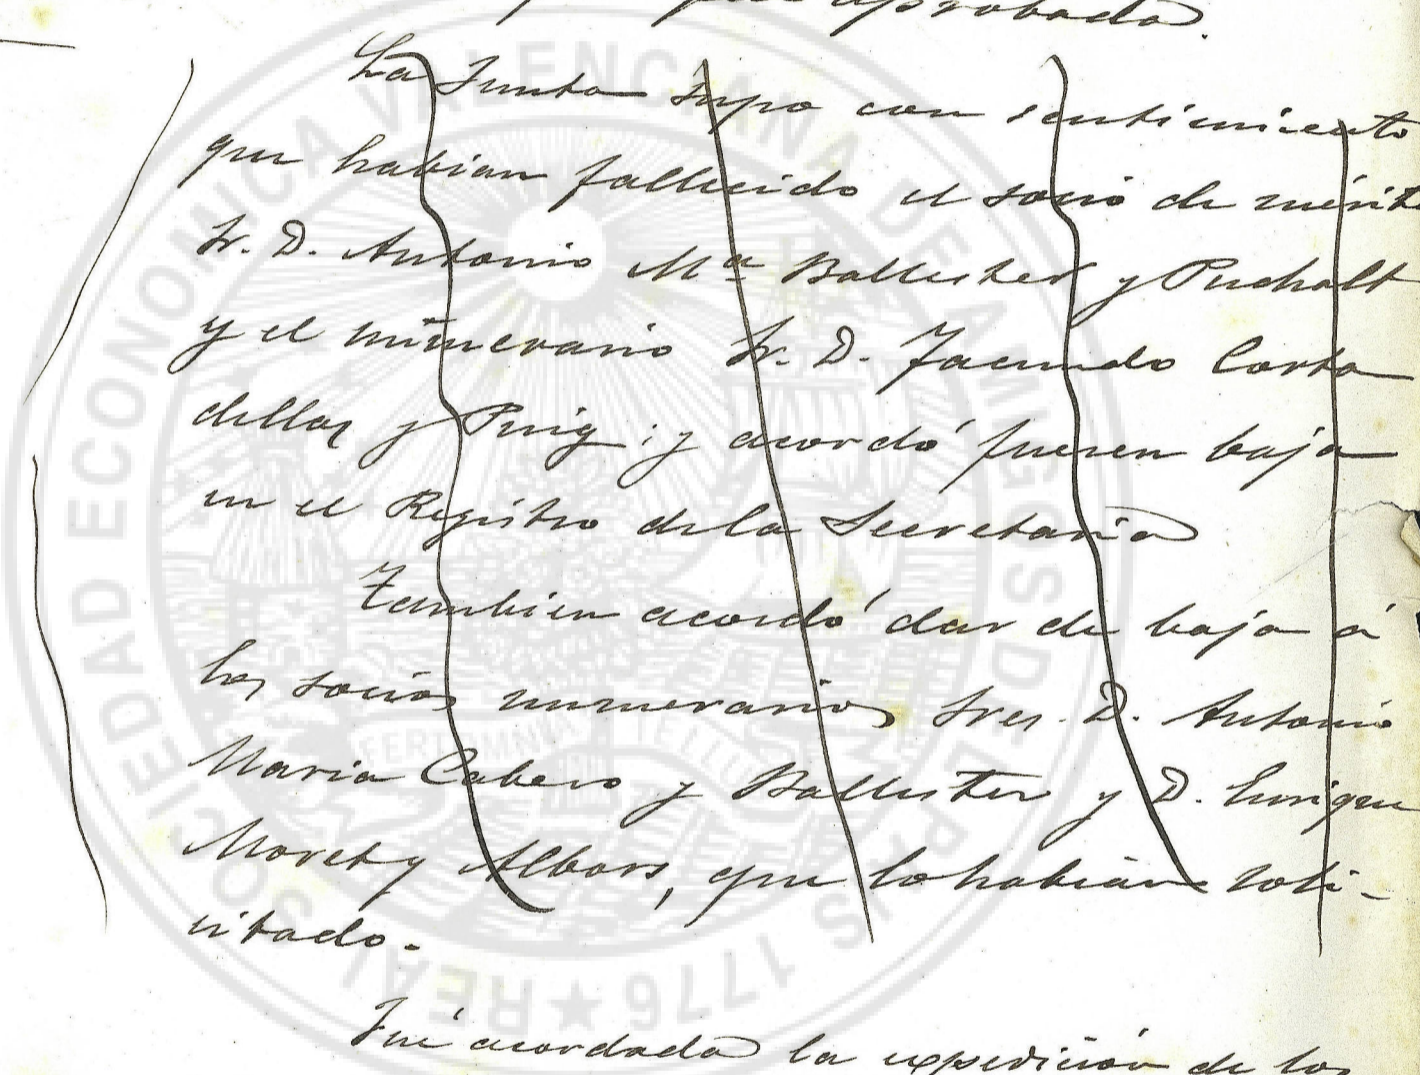 aprobada.
La Junta supo con sentimiento
que habian fallecido el socio de mérito
Sr. D. Antonio Mª Ballester y Puchalt
y el númerario Sr. D. Facundo Corta
dellas y Puig; y acordó fuesen baja
en el Registro dela Secretaria
Tambien acordó dar de baja á
los socios numerarios Sres. D. Antonio
Maria Cabero y Ballester y D. Enrique
Moret y Albors, que lo habian soli-
citado.
Fué acordada la expedición de los
REAL SOCIEDAD ECONOMICA VALENCIANA DE AMIGOS DEL PAIS 1776